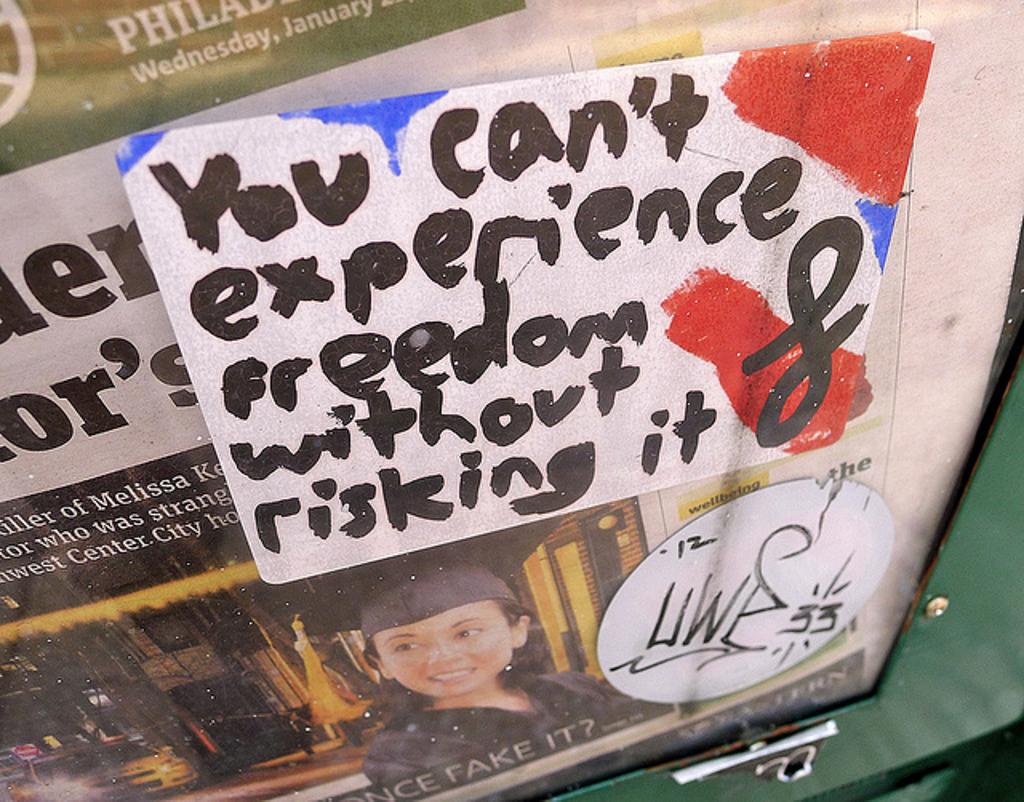 Wednesday, January
You can't
experience
freedom
without
risking it
iller of Melissa
or who was
west Center City
wellbeing
the
'12
UWP
33
ONCE FAKE IT?